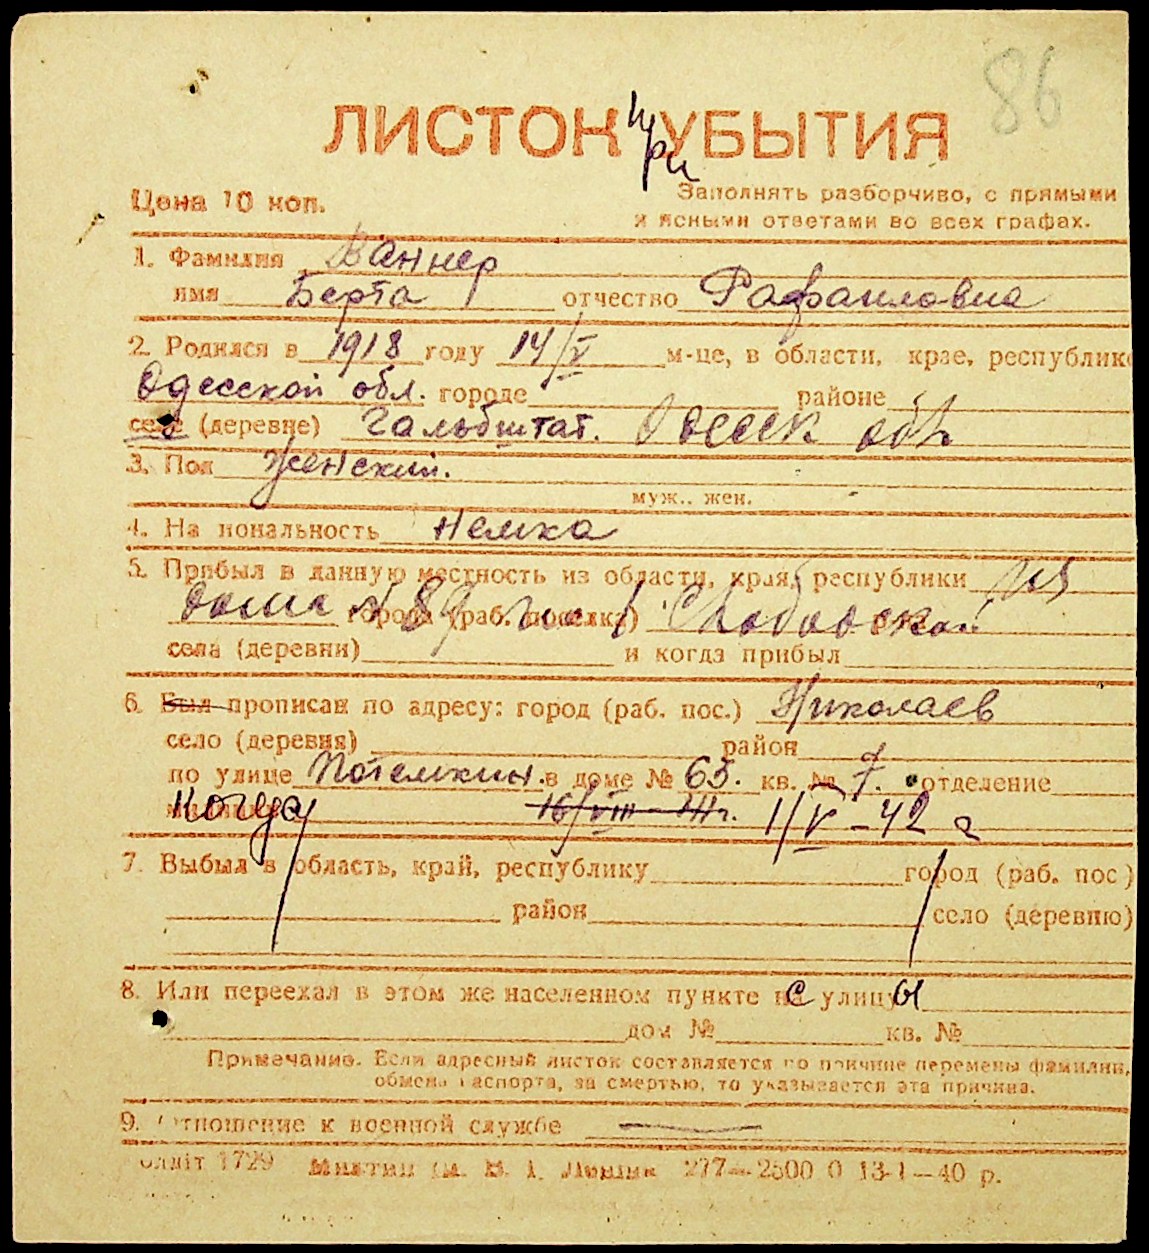 86
ЛИСТОК при УБЫТИЯ
Цена 10 коп.
Заполнять разборчиво, с прямыми
и ясными ответами во всех графах.
1. Фамилия Ваннер
имя Берта отчество Рафаиловна
2. Родился в 1918 году 14/V м-це, в области, крае, республике
Одесской обл. городе районе
селе (деревне) Гальбштат. Одесск обл
3. Пол Женский.
муж.. жен.
4. На иональность немка
5. Прибыл в данную местность из области, края, республики из
дома № 89 города (раб. поселка) Слободской
села (деревни) и когда прибыл
6. Был прописан по адресу: город (раб. пос.) Николаев
село (деревня) район
по улице Потемкин. в доме № 65. кв. № 7. отделение
Когда 16/VIII-41г. 1/V-42 г
7. Выбыл в область, край, республику город (раб. пос)
район село (деревню)
8. Или переехал в этом же населенном пункте с улицы
дом № кв. №
Примечание. Если адресный листок составляется по причине перемены фамилии,
обмена паспорта, за смертью, то указывается эта причина.
9. Отношение к военной службе
1729 277—2500 0 13-1—40 р.